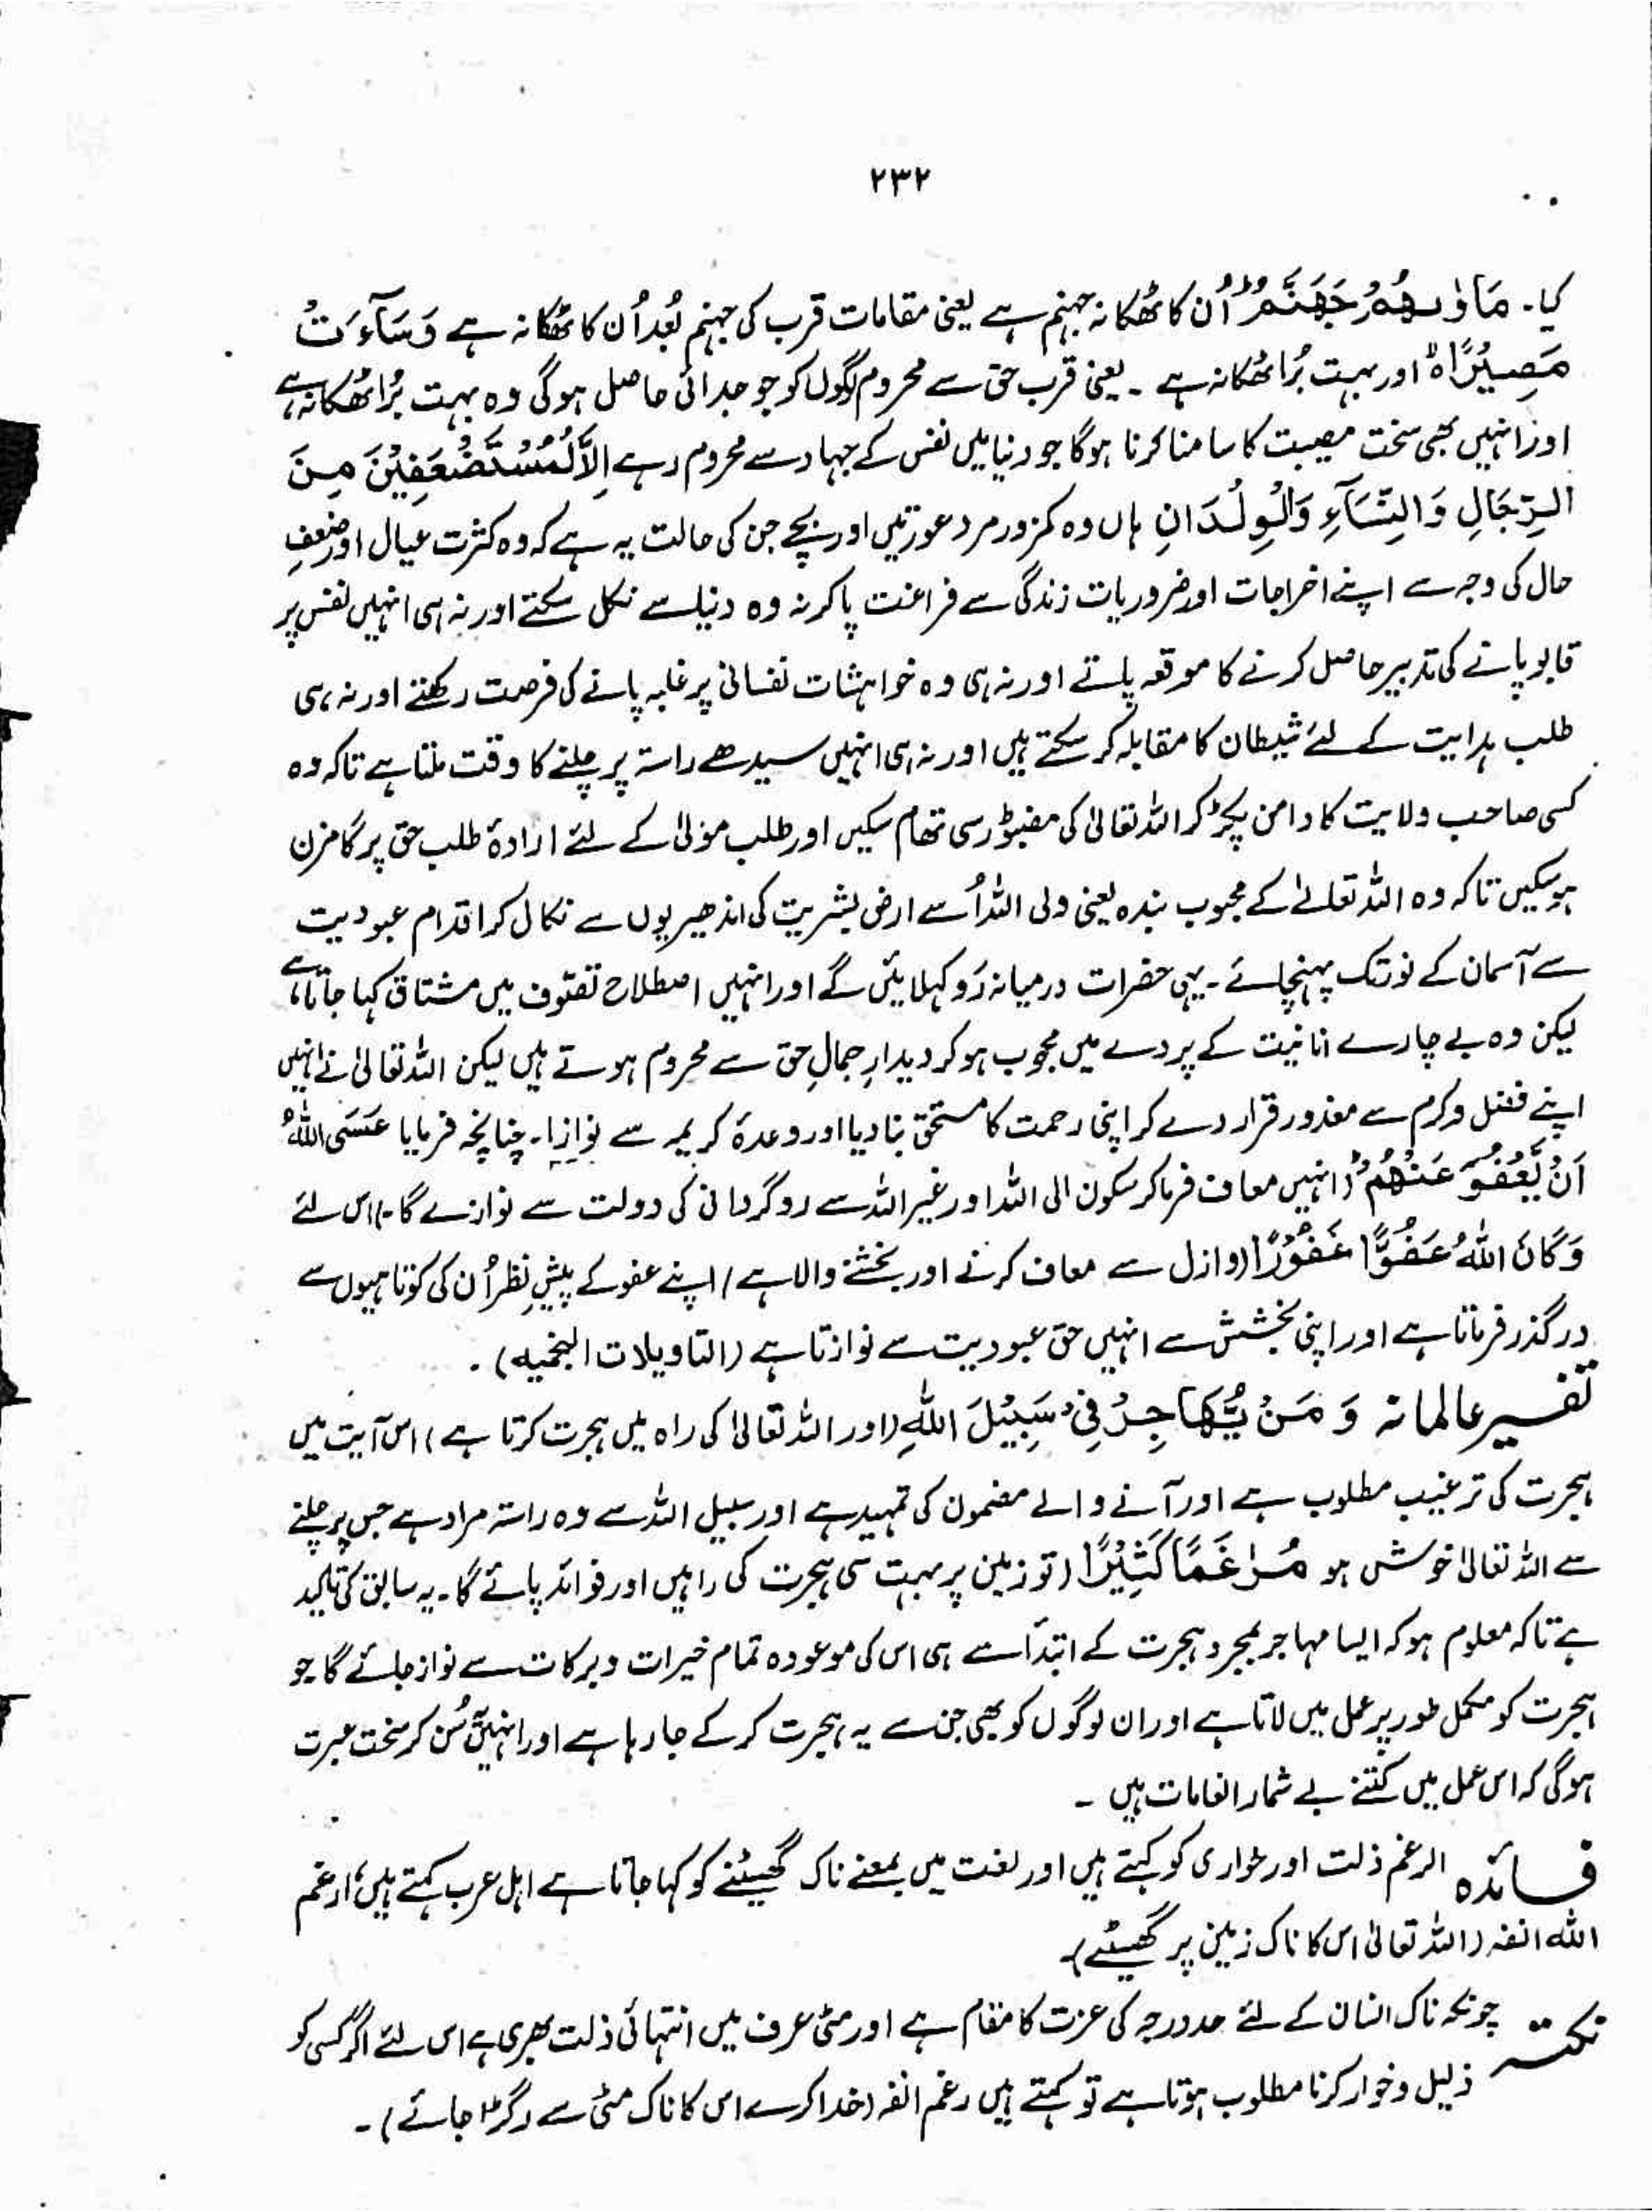 ۲۳۲
کیا۔ مَاْوٰىهُمْ جَهَنَّمُ ؕ اُن کا ٹھکانہ جہنم ہے یعنی مقامات قرب کی جہنم بُعد اُن کا ٹھکانہ ہے وَسَآءَتْ
مَصِيْرًا ۙ اور بہت بُرا ٹھکانہ ہے ۔ یعنی قرب حق سے محروم لوگوں کو جو جدائی حاصل ہوگی وہ بہت بُرا ٹھکانہ ہے
اور انہیں بھی سخت مصیبت کا سامنا کرنا ہوگا جو دنیا میں نفس کے جہاد سے محروم رہے اِلَّا الْمُسْتَضْعَفِيْنَ مِنَ
الرِّجَالِ وَالنِّسَآءِ وَالْوِلْدَانِ ہاں وہ کمزور مرد عورتیں اور بچے جن کی حالت یہ ہے کہ وہ کثرت عیال اور ضعفِ
حال کی وجہ سے اپنے اخراجات اور ضروریات زندگی سے فراغت پا کر نہ وہ دنیا سے نکل سکتے اور نہ ہی انہیں نفس پر
قابو پانے کی تدبیر حاصل کرنے کا موقعہ پاتے اور نہ ہی وہ خواہشات نفسانی پر غلبہ پانے کی فرصت رکھتے اور نہ ہی
طلب ہدایت کے لئے شیطان کا مقابلہ کر سکتے ہیں اور نہ ہی انہیں سیدھے راستہ پر چلنے کا وقت ملتا ہے تاکہ وہ
کسی صاحب ولایت کا دامن پکڑ کر اللہ تعالیٰ کی مضبوڑ رسی تھام سکیں اور طلب مولیٰ کے لئے ارادۂ طلب حق پر گامزن
ہو سکیں تاکہ وہ اللہ تعالےٰ کے محبوب بندہ یعنی ولی اللہ اُسے ارض بشریت کی اندھیریوں سے نکال کر اقدام عبودیت
سے آسمان کے نور تک پہنچائے ۔ یہی حضرات درمیانہ رَو کہلائیں گے اور انہیں اصطلاح تصوّف میں مشتاق کہا جاتا ہے
لیکن وہ بے چارے انانیت کے پردے میں محجوب ہو کر دیدارِ جمالِ حق سے محروم ہوتے ہیں لیکن اللہ تعالیٰ نے انہیں
اپنے فضل و کرم سے معذور قرار دے کر اپنی رحمت کا مستحق بنا دیا اور وعدۂ کریمہ سے نوازا ۔ چنانچہ فرمایا عَسَى اللّٰهُ
اَنْ يَّعْفُوَ عَنْهُمْ ؕ (انہیں معاف فرما کر سکون الی اللہ اور غیر اللہ سے روگردانی کی دولت سے نوازے گا ۔) اس لئے
وَكَانَ اللّٰهُ عَفُوًّا غَفُوْرًا (وازل سے معاف کرنے اور بخشنے والا ہے) اپنے عفو کے پیشِ نظر اُن کی کوتاہیوں سے
درگذر فرماتا ہے اور اپنی بخشش سے انہیں حق عبودیت سے نوازتا ہے (التاویلات النجمیہ) ۔
تفسیر عالمانہ وَ مَنْ يُّهَاجِرْ فِىْ سَبِيْلِ اللّٰهِ (اور اللہ تعالیٰ کی راہ میں ہجرت کرتا ہے) اس آیت میں
ہجرت کی ترغیب مطلوب ہے اور آنے والے مضمون کی تمہید ہے اور سبیل اللہ سے وہ راستہ مراد ہے جس پر چلنے
سے اللہ تعالیٰ خوش ہو مُرٰغَمًا كَثِيْرًا (تو زمین پر بہت سی ہجرت کی راہیں اور فوائد پائے گا ۔ یہ سابق کی تاکید
ہے تاکہ معلوم ہو کہ ایسا مہاجر بمجرد ہجرت کے ابتدأ سے ہی اس کی موعودہ تمام خیرات و برکات سے نواز جائے گا جو
ہجرت کو مکمل طور پر عمل میں لاتا ہے اور ان لوگوں کو بھی جن سے یہ ہجرت کر کے جا رہا ہے اور انہیں سُن کر سخت عبرت
ہوگی کہ اس عمل میں کتنے بے شمار انعامات ہیں ۔
فائدہ الرغم ذلت اور خواری کو کہتے ہیں اور لغت میں بمعنے ناک گھسیٹنے کو کہا جاتا ہے اہل عرب کہتے ہیں، ارغم
اللہ انفہ (اللہ تعالیٰ اس کا ناک زمین پر گھسیٹے)۔
نکتہ چونکہ ناک انسان کے لئے حد درجہ کی عزت کا مقام ہے اور مٹی عرف میں انتہائی ذلت بھری ہے اس لئے اگر کسی کو
ذلیل و خوار کرنا مطلوب ہوتا ہے تو کہتے ہیں رغم انفہ (خدا کرے اس کا ناک مٹی سے رگڑا جائے) ۔